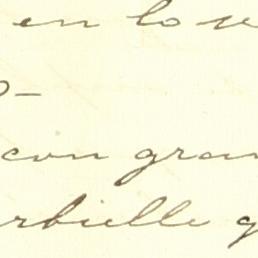 en lo se
con gran
rbielle g